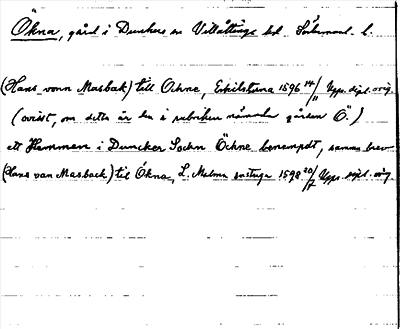 Ökna, gård i Dunkers sn Villåttinge hd Söderman. l.
(Hans vonn Masbak) till Ökne, Eskilstuna 1596 14/11 Upps. dipl. orig.
(ovisst, om detta är den i rubriken nämnda gården Ö.)
ett Hemman i Duncker Sockn Öchne benempdt, samma brev
(Hans van Masback) til Ökna, L. Malms sextuge 1598 20/7 Upps. dipl. orig.